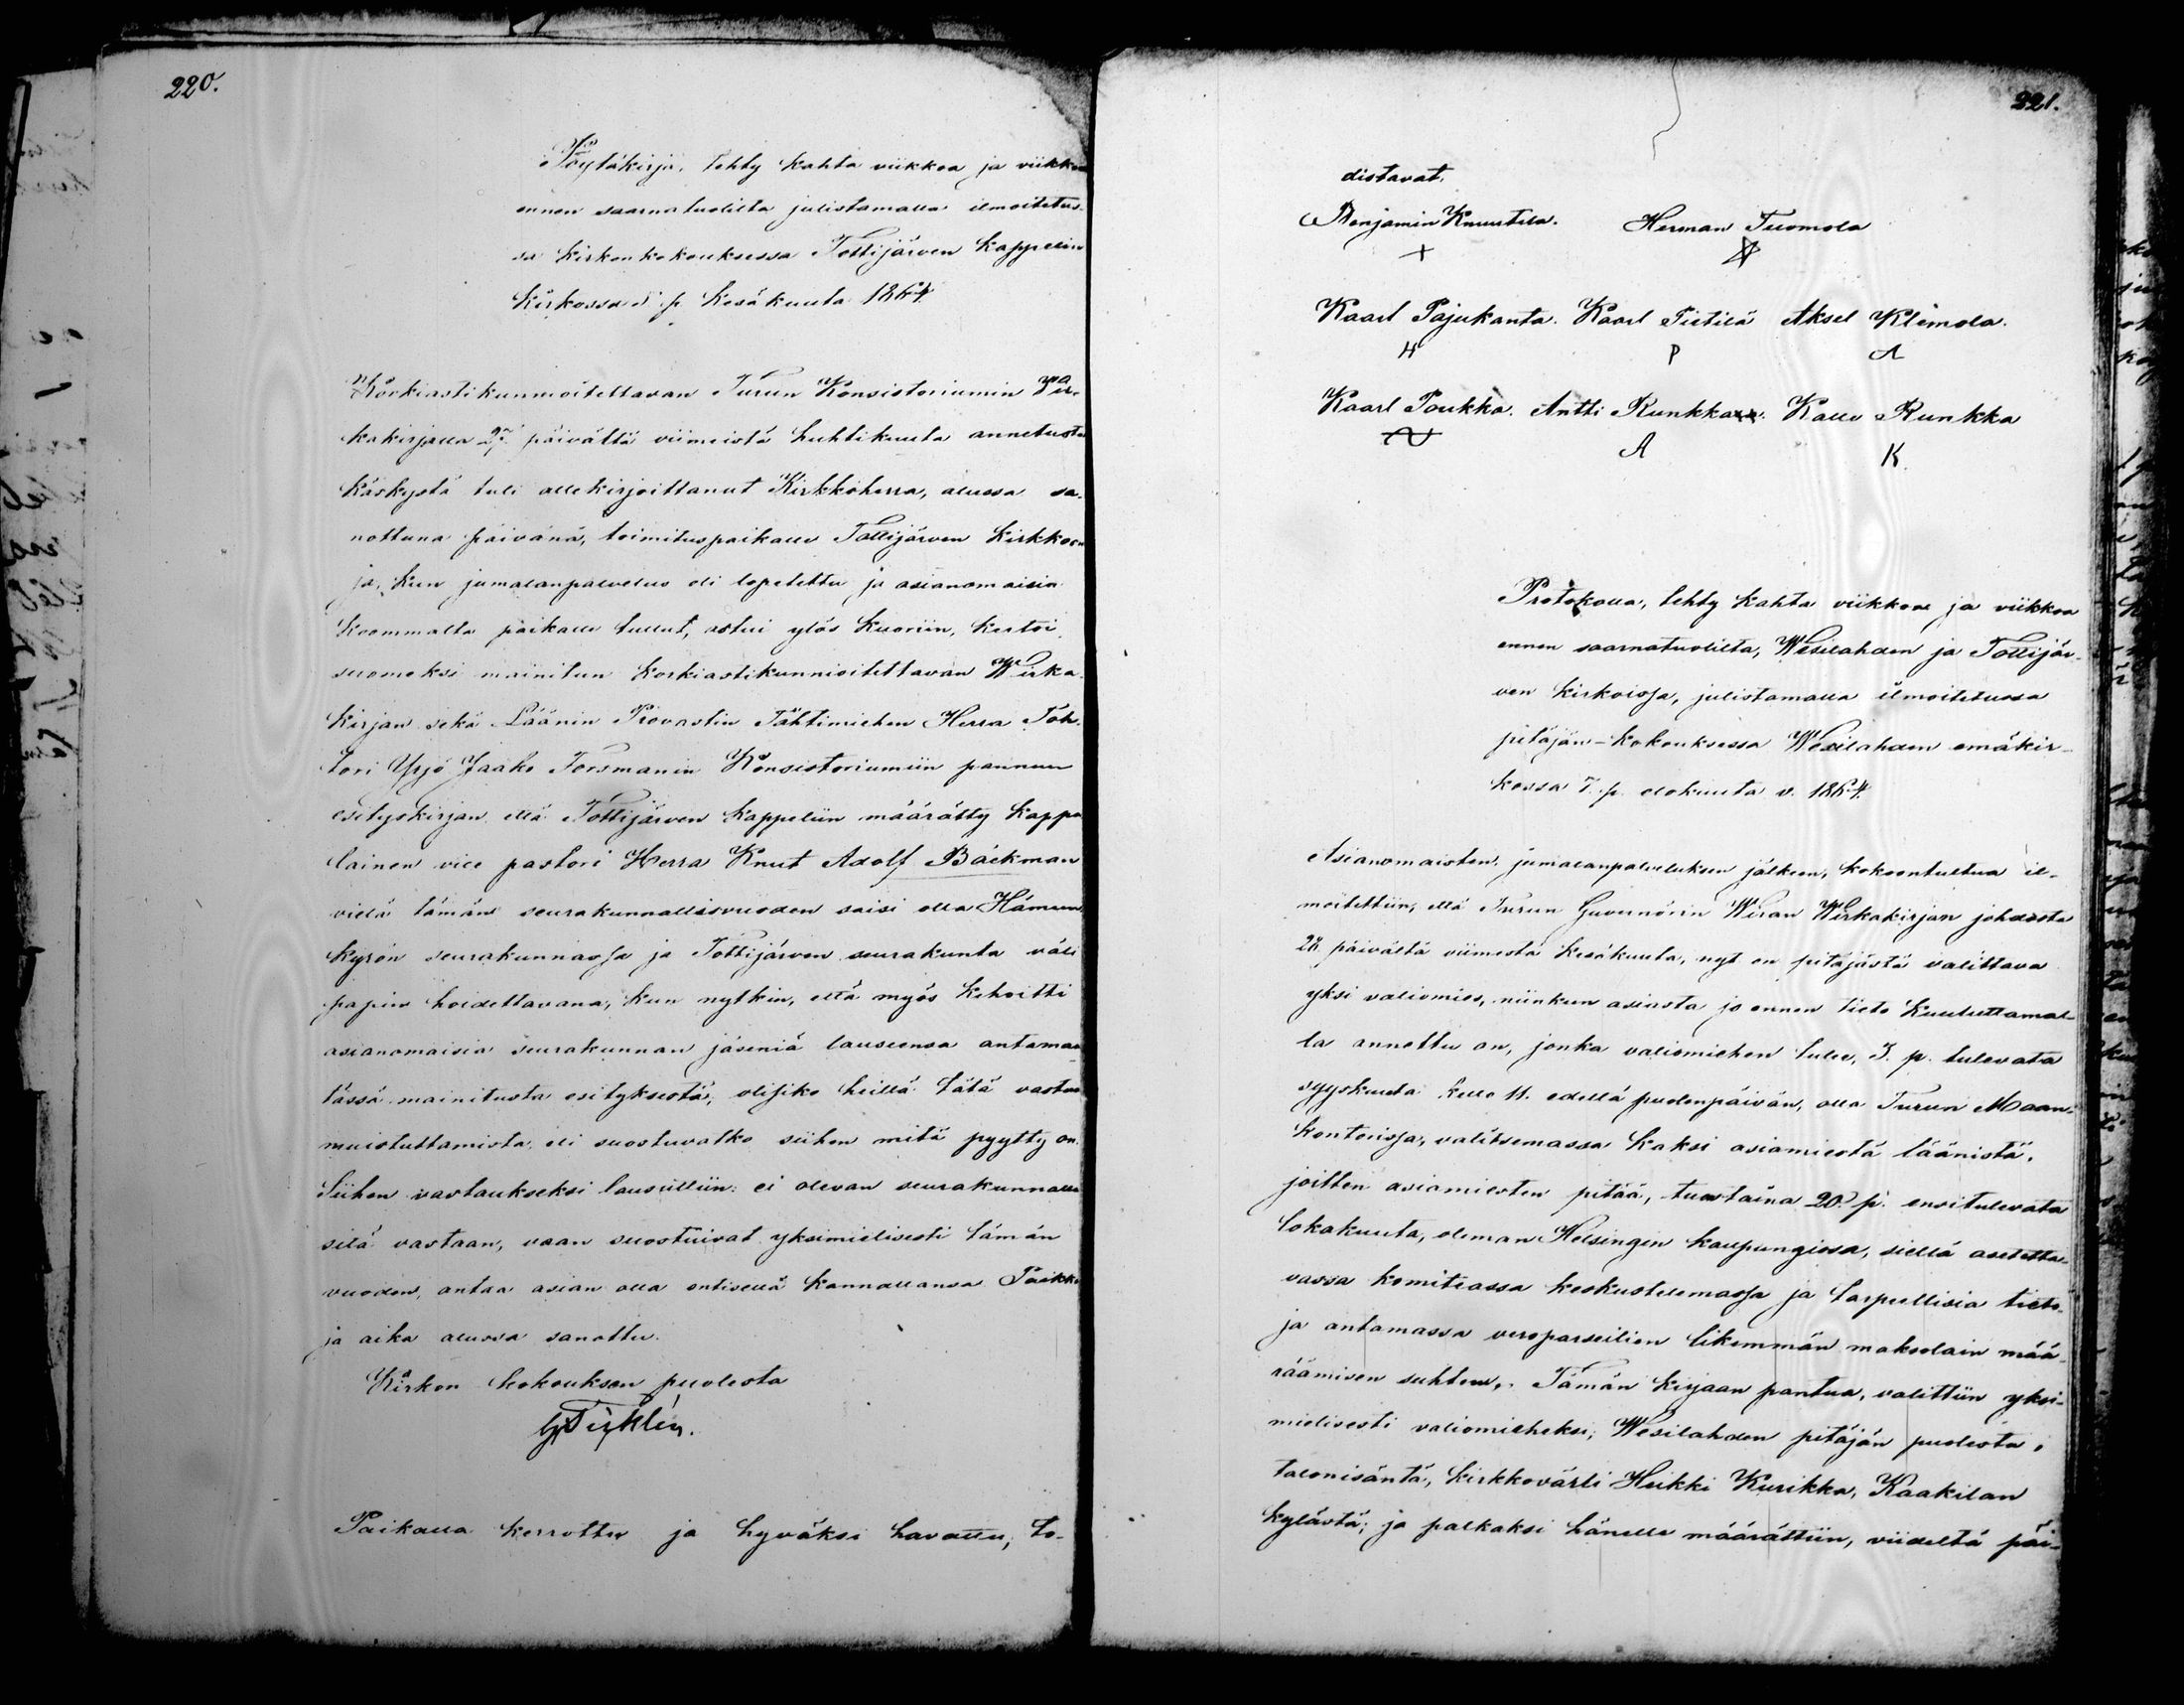 220.
Pöytäkirja, tehty kahta viikkoa ja viikkoa
ennen saarnatuolilta julistamalla ilmoitetus-
sa kirkonkokouksessa Tottijärven kappelin
kirkossa 5 p. Kesäkuuta 1864.
Korkiastikunnioitettavan Turun Konsistoriumin Vir-
kakirjalla 27 päivältä viimeistä huhtikuuta annetusta
käskystä tuli allekirjoittanut Kirkkoherra, alussa sa-
nottuna päivänä, toimituspaikalle Tottijärven kirkkoon
ja, kun jumalanpalvelus oli lopetettu ja asianomaisia
koommalta paikalle tullut, astui ylös kuoriin, kertoi
suomeksi mainitun korkiastikunnioitettavan Wirka-
kirjan sekä Läänin Provastin Tähtimiehen Herra Toh-
tori Yrjö Jaako Forsmanin Konsistoriumiin pannun
esityskirjan että Tottijärven kappeliin määrätty kappa-
lainen vice pastori Herra Knut Adolf Bäckman
vielä tämän seurakunnallisvuoden saisi olla Hämeen
kyrön seurakunnassa ja Tottijärven seurakunta väli
papin hoidettavana, kun nytkin, että myös kehoitti
asianomaisia seurakunnan jäseniä lauseensa antamaan
tässä mainitusta esityksestä, olisiko heillä tätä vastaan
muistuttamista eli suostuvatko siihen mitä pyytty on.
Siihen vastaukseksi lausuttiin: ei olevan seurakunnalla
sitä vastaan, vaan suostuivat yksimielisesti tämän
vuoden, antaa asian olla entisellä kannallansa Paikka
ja aika alussa sanottu.
Kirkon kokouksen puolesta
Paikalla kerrottu ja hyväksi havattu, to-
221.
distavat.
Benjamin Knuutila. Herman Tuomola
Kaarl Pajukanta. Kaarl Pietilä Aksel Klimola.
H P A
Kaarl Poukka. Antti Runkka Kalle Runkka
A K.
Protokolla, tehty kahta viikkoa ja viikkoa
ennen saarnatuolilta, Wesilahden ja Tottijär-
ven kirkoissa, julistamalla ilmoitetussa
pitäjän-kokouksessa Wesilahden emäkir-
kossa 7. p. elokuuta v. 1864.
Asianomaisten, jumalanpalveluksen jälkeen, kokoontultua il-
moitettiin, että Turun Guvernörin Wiran Wirkakirjan johdosta
28 päivältä viimestä kesäkuuta, nyt on pitäjästä valittava
yksi valiomies, niinkun asiasta jo ennen tieto kuuluttamal-
la annettu on, jonka valiomiehen tulee, 7. p. tulevata
syyskuuta kello 11. edellä puolenpäivän, olla Turun Maan-
kontorissa, valitsemassa kaksi asiamiestä läänistä,
joitten asiamiesten pitää, tiistaina 20. p. ensitulevata
lokakuuta, oleman Helsingin kaupungissa, siellä asetetta-
vassa komiteassa keskustelemassa ja tarpeellisia tieto-
ja antamassa veroparseilien likemmän maksolain mää-
räämisen suhteen,. Tämän kirjaan pantua, valittiin yksi-
mielisesti valiomieheksi, Wesilahden pitäjän puolesta,
talonisäntä, kirkkovärti Heikki Kurikka, Kaakilan
kylästä; ja palkaksi hänelle määrättiin, viideltä päi-